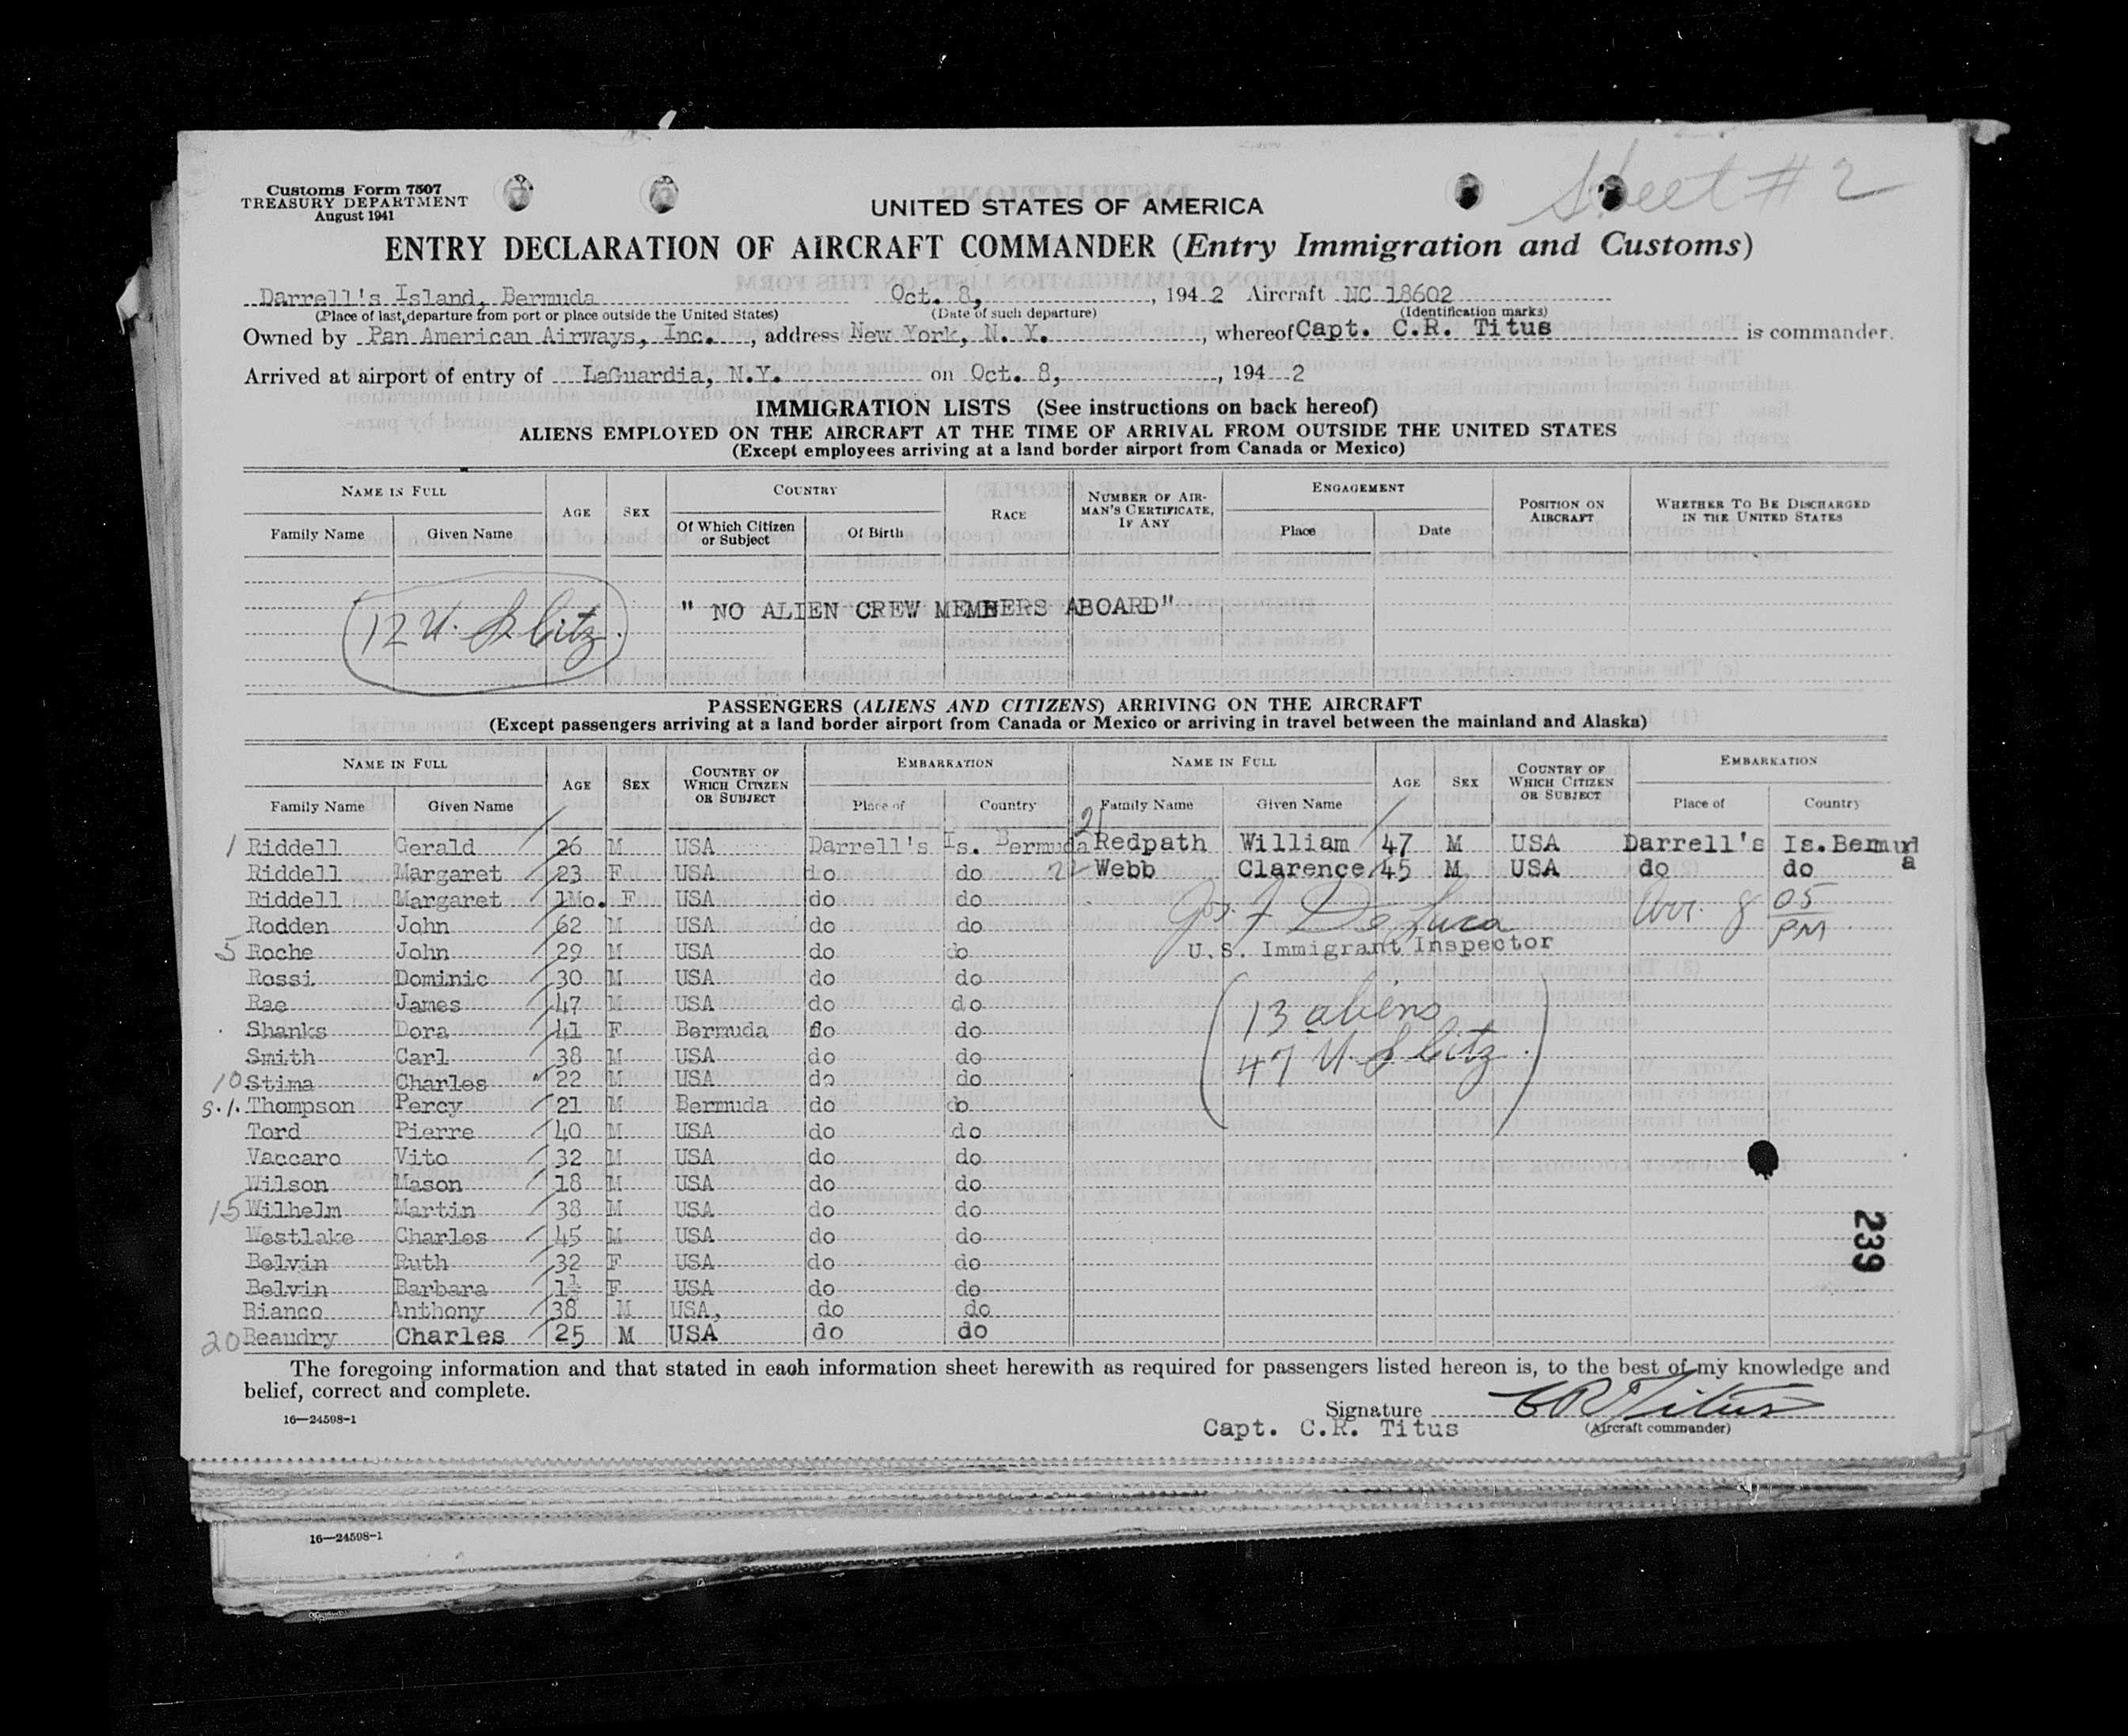 Sheet # 2
Customs Form 7507
TREASURY DEPARTMENT
August 1941
UNITED STATES OF AMERICA
ENTRY DECLARATION OF AIRCRAFT COMMANDER (Entry Immigration and Customs)
Darrell's Island, Bermuda Oct. 8, , 194 2 Aircraft NC 18602
(Place of last departure from port or place outside the United States) (Date of such departure) (Identification marks)
Owned by Pan American Airways, Inc. , address New York, N. Y. , whereof Capt. C.R. Titus is commander.
Arrived at airport of entry of LaGuardia, N.Y. on Oct. 8, , 194 2
IMMIGRATION LISTS (See instructions on back hereof)
ALIENS EMPLOYED ON THE AIRCRAFT AT THE TIME OF ARRIVAL FROM OUTSIDE THE UNITED STATES
(Except employees arriving at a land border airport from Canada or Mexico)
NAME IN FULL AGE SEX COUNTRY RACE NUMBER OF AIRMAN'S CERTIFICATE, IF ANY ENGAGEMENT POSITION ON AIRCRAFT WHETHER TO BE DISCHARGED IN THE UNITED STATES
Family Name Given Name Of Which Citizen or Subject Of Birth Place Date
12 U.S. Citz.
" NO ALIEN CREW MEMBERS ABOARD"
PASSENGERS (ALIENS AND CITIZENS) ARRIVING ON THE AIRCRAFT
(Except passengers arriving at a land border airport from Canada or Mexico or arriving in travel between the mainland and Alaska)
NAME IN FULL AGE SEX COUNTRY OF WHICH CITIZEN OR SUBJECT EMBARKATION NAME IN FULL AGE SEX COUNTRY OF WHICH CITIZEN OR SUBJECT EMBARKATION
Family Name Given Name Place of Country Family Name Given Name Place of Country
1 Riddell Gerald 26 M USA Darrell's Is. Bermuda 21 Redpath William 47 M USA Darrell's Is.Bermuda
Riddell Margaret 23 F USA do do 22 Webb Clarence 45 M USA do do
Riddell Margaret 1Mo. F USA do do
Rodden John 62 M USA do do Jos. F De Luca Arr. 8 05 PM
5 Roche John 29 M USA do do U.S. Immigrant Inspector
Rossi Dominic 30 M USA do do
Rae James 47 M USA do do 13 aliens
Shanks Dora 41 F Bermuda do do
Smith Carl 38 M USA do do 47 U.S. Citz.
10 Stima Charles 22 M USA do do
S.I. Thompson Percy 21 M Bermuda do do
Tord Pierre 40 M USA do do
Vaccaro Vito 32 M USA do do
Wilson Mason 18 M USA do do
15 Wilhelm Martin 38 M USA do do
Westlake Charles 45 M USA do do
Belvin Ruth 32 F USA do do
Belvin Barbara 1½ F USA do do
Bianco Anthony 38 M USA, do do
20 Beaudry Charles 25 M USA do do
239
The foregoing information and that stated in each information sheet herewith as required for passengers listed hereon is, to the best of my knowledge and
belief, correct and complete.
16—24598-1
Signature CR Titus
Capt. C.R. Titus (Aircraft commander)
16—24598-1